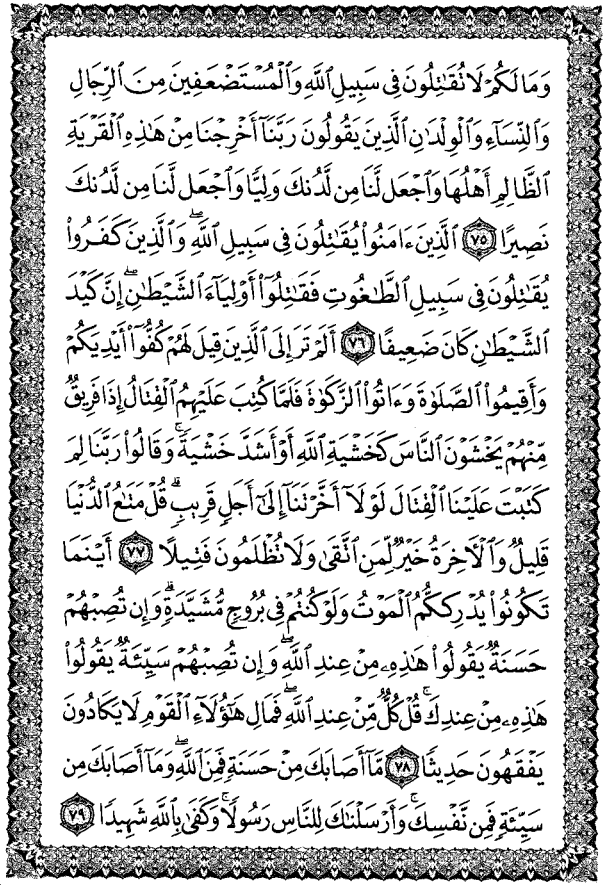 وَمَا لَكُمْ لَا تُقَٰتِلُونَ فِى سَبِيلِ ٱللَّهِ وَٱلْمُسْتَضْعَفِينَ مِنَ ٱلرِّجَالِ
وَٱلنِّسَآءِ وَٱلْوِلْدَٰنِ ٱلَّذِينَ يَقُولُونَ رَبَّنَآ أَخْرِجْنَا مِنْ هَٰذِهِ ٱلْقَرْيَةِ
ٱلظَّالِمِ أَهْلُهَا وَٱجْعَل لَّنَا مِن لَّدُنكَ وَلِيًّا وَٱجْعَل لَّنَا مِن لَّدُنكَ
نَصِيرًا ٧٥ ٱلَّذِينَ ءَامَنُوا۟ يُقَٰتِلُونَ فِى سَبِيلِ ٱللَّهِ ۖ وَٱلَّذِينَ كَفَرُوا۟
يُقَٰتِلُونَ فِى سَبِيلِ ٱلطَّٰغُوتِ فَقَٰتِلُوٓا۟ أَوْلِيَآءَ ٱلشَّيْطَٰنِ ۖ إِنَّ كَيْدَ
ٱلشَّيْطَٰنِ كَانَ ضَعِيفًا ٧٦ أَلَمْ تَرَ إِلَى ٱلَّذِينَ قِيلَ لَهُمْ كُفُّوٓا۟ أَيْدِيَكُمْ
وَأَقِيمُوا۟ ٱلصَّلَوٰةَ وَءَاتُوا۟ ٱلزَّكَوٰةَ فَلَمَّا كُتِبَ عَلَيْهِمُ ٱلْقِتَالُ إِذَا فَرِيقٌ
مِّنْهُمْ يَخْشَوْنَ ٱلنَّاسَ كَخَشْيَةِ ٱللَّهِ أَوْ أَشَدَّ خَشْيَةً ۚ وَقَالُوا۟ رَبَّنَا لِمَ
كَتَبْتَ عَلَيْنَا ٱلْقِتَالَ لَوْلَآ أَخَّرْتَنَآ إِلَىٰٓ أَجَلٍ قَرِيبٍ ۗ قُلْ مَتَٰعُ ٱلدُّنْيَا
قَلِيلٌ وَٱلْءَاخِرَةُ خَيْرٌ لِّمَنِ ٱتَّقَىٰ وَلَا تُظْلَمُونَ فَتِيلًا ٧٧ أَيْنَمَا
تَكُونُوا۟ يُدْرِككُّمُ ٱلْمَوْتُ وَلَوْ كُنتُمْ فِى بُرُوجٍ مُّشَيَّدَةٍ ۗ وَإِن تُصِبْهُمْ
حَسَنَةٌ يَقُولُوا۟ هَٰذِهِۦ مِنْ عِندِ ٱللَّهِ ۖ وَإِن تُصِبْهُمْ سَيِّئَةٌ يَقُولُوا۟
هَٰذِهِۦ مِنْ عِندِكَ ۚ قُلْ كُلٌّ مِّنْ عِندِ ٱللَّهِ ۖ فَمَالِ هَٰٓؤُلَآءِ ٱلْقَوْمِ لَا يَكَادُونَ
يَفْقَهُونَ حَدِيثًا ٧٨ مَّآ أَصَابَكَ مِنْ حَسَنَةٍ فَمِنَ ٱللَّهِ ۖ وَمَآ أَصَابَكَ مِن
سَيِّئَةٍ فَمِن نَّفْسِكَ ۚ وَأَرْسَلْنَٰكَ لِلنَّاسِ رَسُولًا ۚ وَكَفَىٰ بِٱللَّهِ شَهِيدًا ٧٩